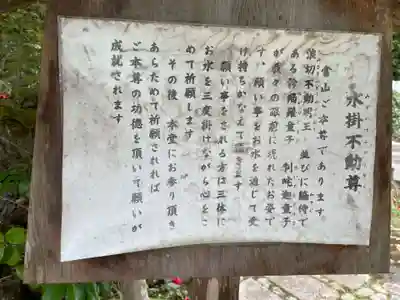 水掛不動尊
當山ご本尊であります
波切不動明王 並びに脇侍で
ある矜羯羅童子 制吒迦童子
が我々の眼前に現れたお姿で
す。願い事をお水を通じて受
け持ちかなえて頂きます
願い事をされる方は三体に
お水を三度掛けながら心をこ
めて祈願します
その後 本堂にお参り頂き
あらためて祈願されれば
ご本尊の功徳を頂いて願いが
成就されます